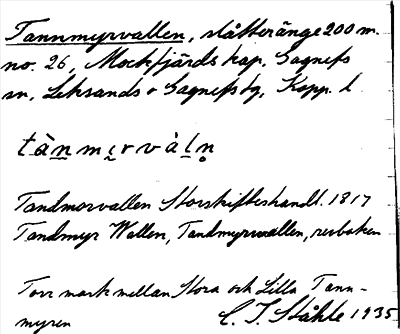 Tannmyrvallen, slåtteränge 200 m.
no. 26, Mockfjärds kap. Gagnefs
sn, Leksands o Gagnefs tg, Kopp. l.
tàn̲mε̮rvàl̲n̥
Tandmorvallen Storskifteshandl. 1817
Tandmyr Wallen, Tandmyrwallen, revboken
Torr mark mellan Stora och Lilla Tann-
myren
C. I. Ståhle 1935